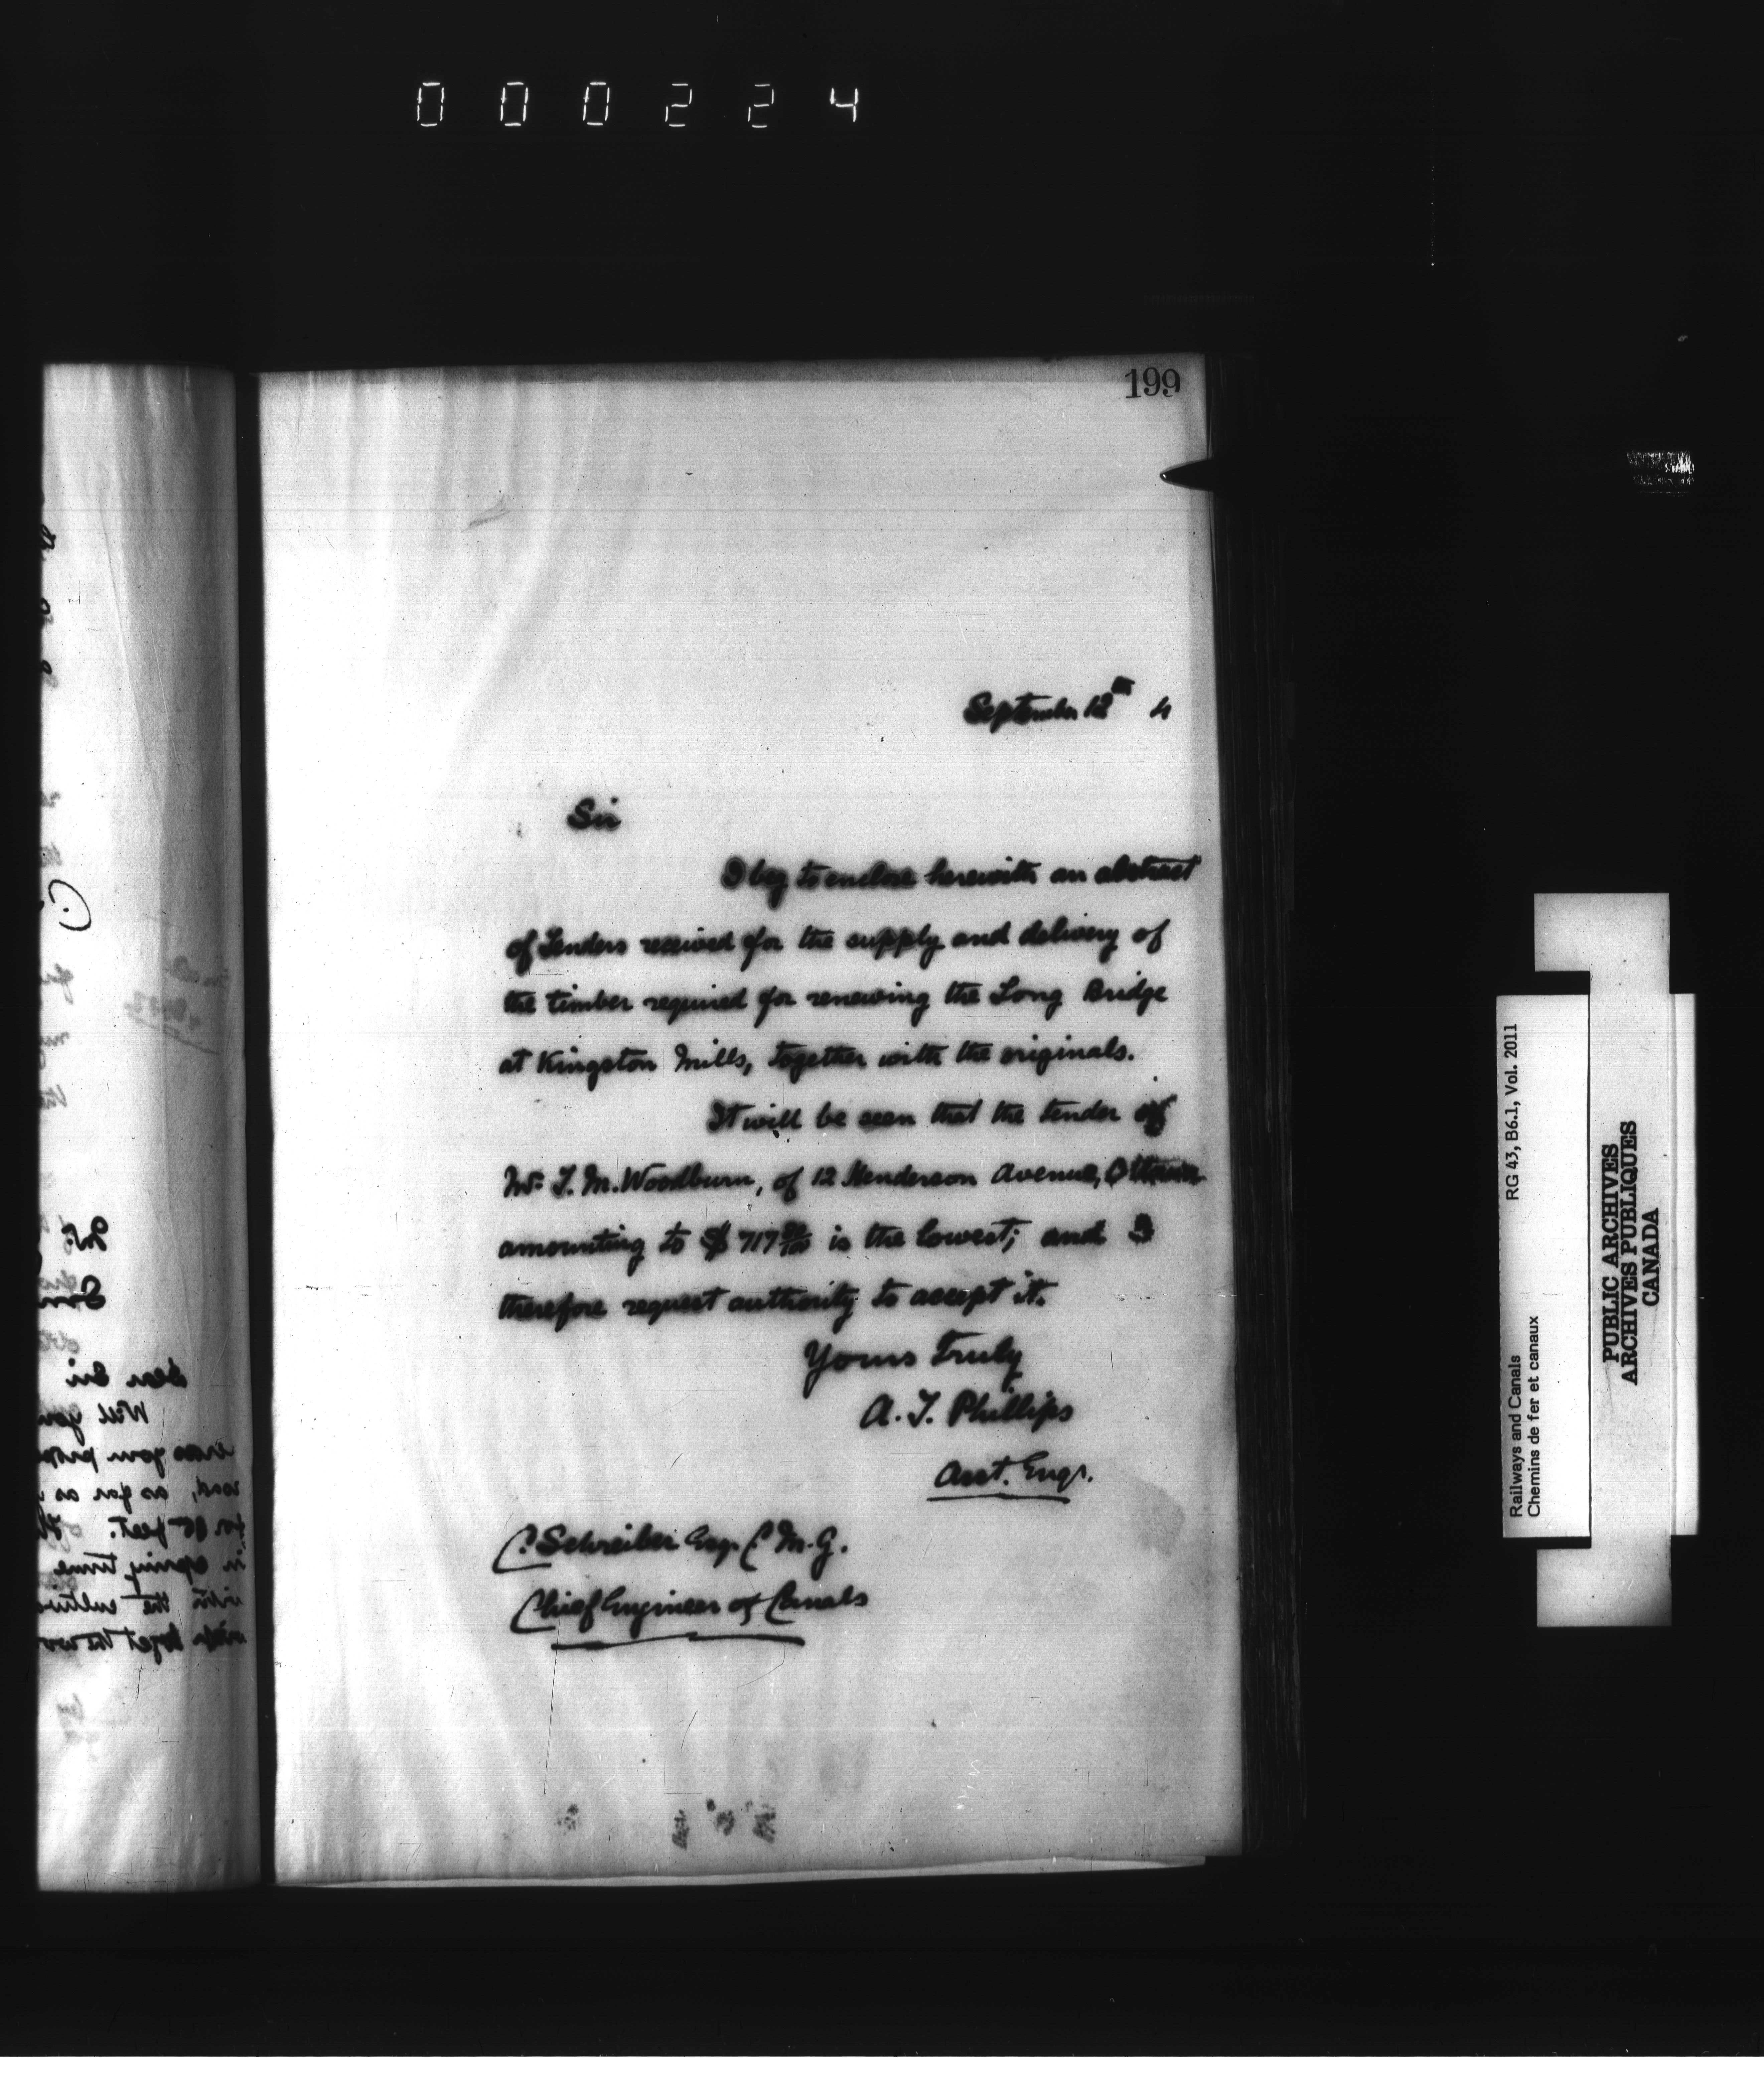 000224
199
September 12th 4
Sir
I beg to enclose herewith an abstract
of Tenders received for the supply and delivery of
the timber required for renewing the Long Bridge
at Kingston Mills, together with the originals.
It will be seen that the tender of
Mr. T. M. Woodburn, of 12 Henderson Avenue, Ottawa
amounting to $ 717 is the lowest; and I
therefore request authority to accept it.
Yours Truly
A. T. Phillips
Asst. Engr.
C. Schreiber Esq. C.M.G.
Chief Engineer of Canals
Mr.
Dear Sir
Will you
cross your
road, as far as
for feet.
in spring time
with the
Railways and Canals RG 43, B6.1, Vol. 2011
Chemins de fer et canaux
PUBLIC ARCHIVES
ARCHIVES PUBLIQUES
CANADA